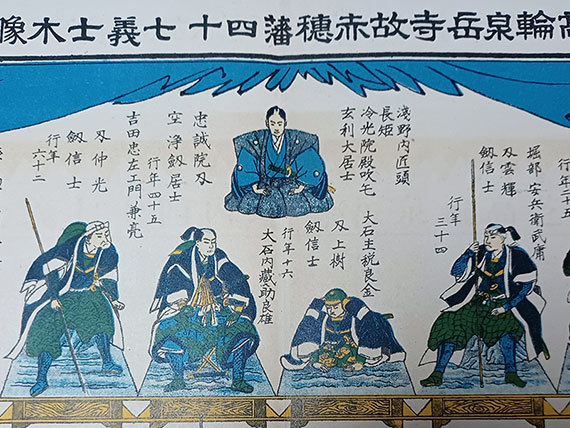 高輪泉岳寺故赤穂藩四十七義士木像
堀部安兵衛武庸
刄雲輝
劔信士
行年
三十四
淺野内匠頭
長矩
冷光院殿吹毛
玄利大居士
大石主税良金
刄上樹
劔信士
行年十六
忠誠院刄
空浄劔居士
行年四十五
大石内蔵助良雄
吉田忠左エ門兼亮
刄仲光
劔信士
行年
六十二